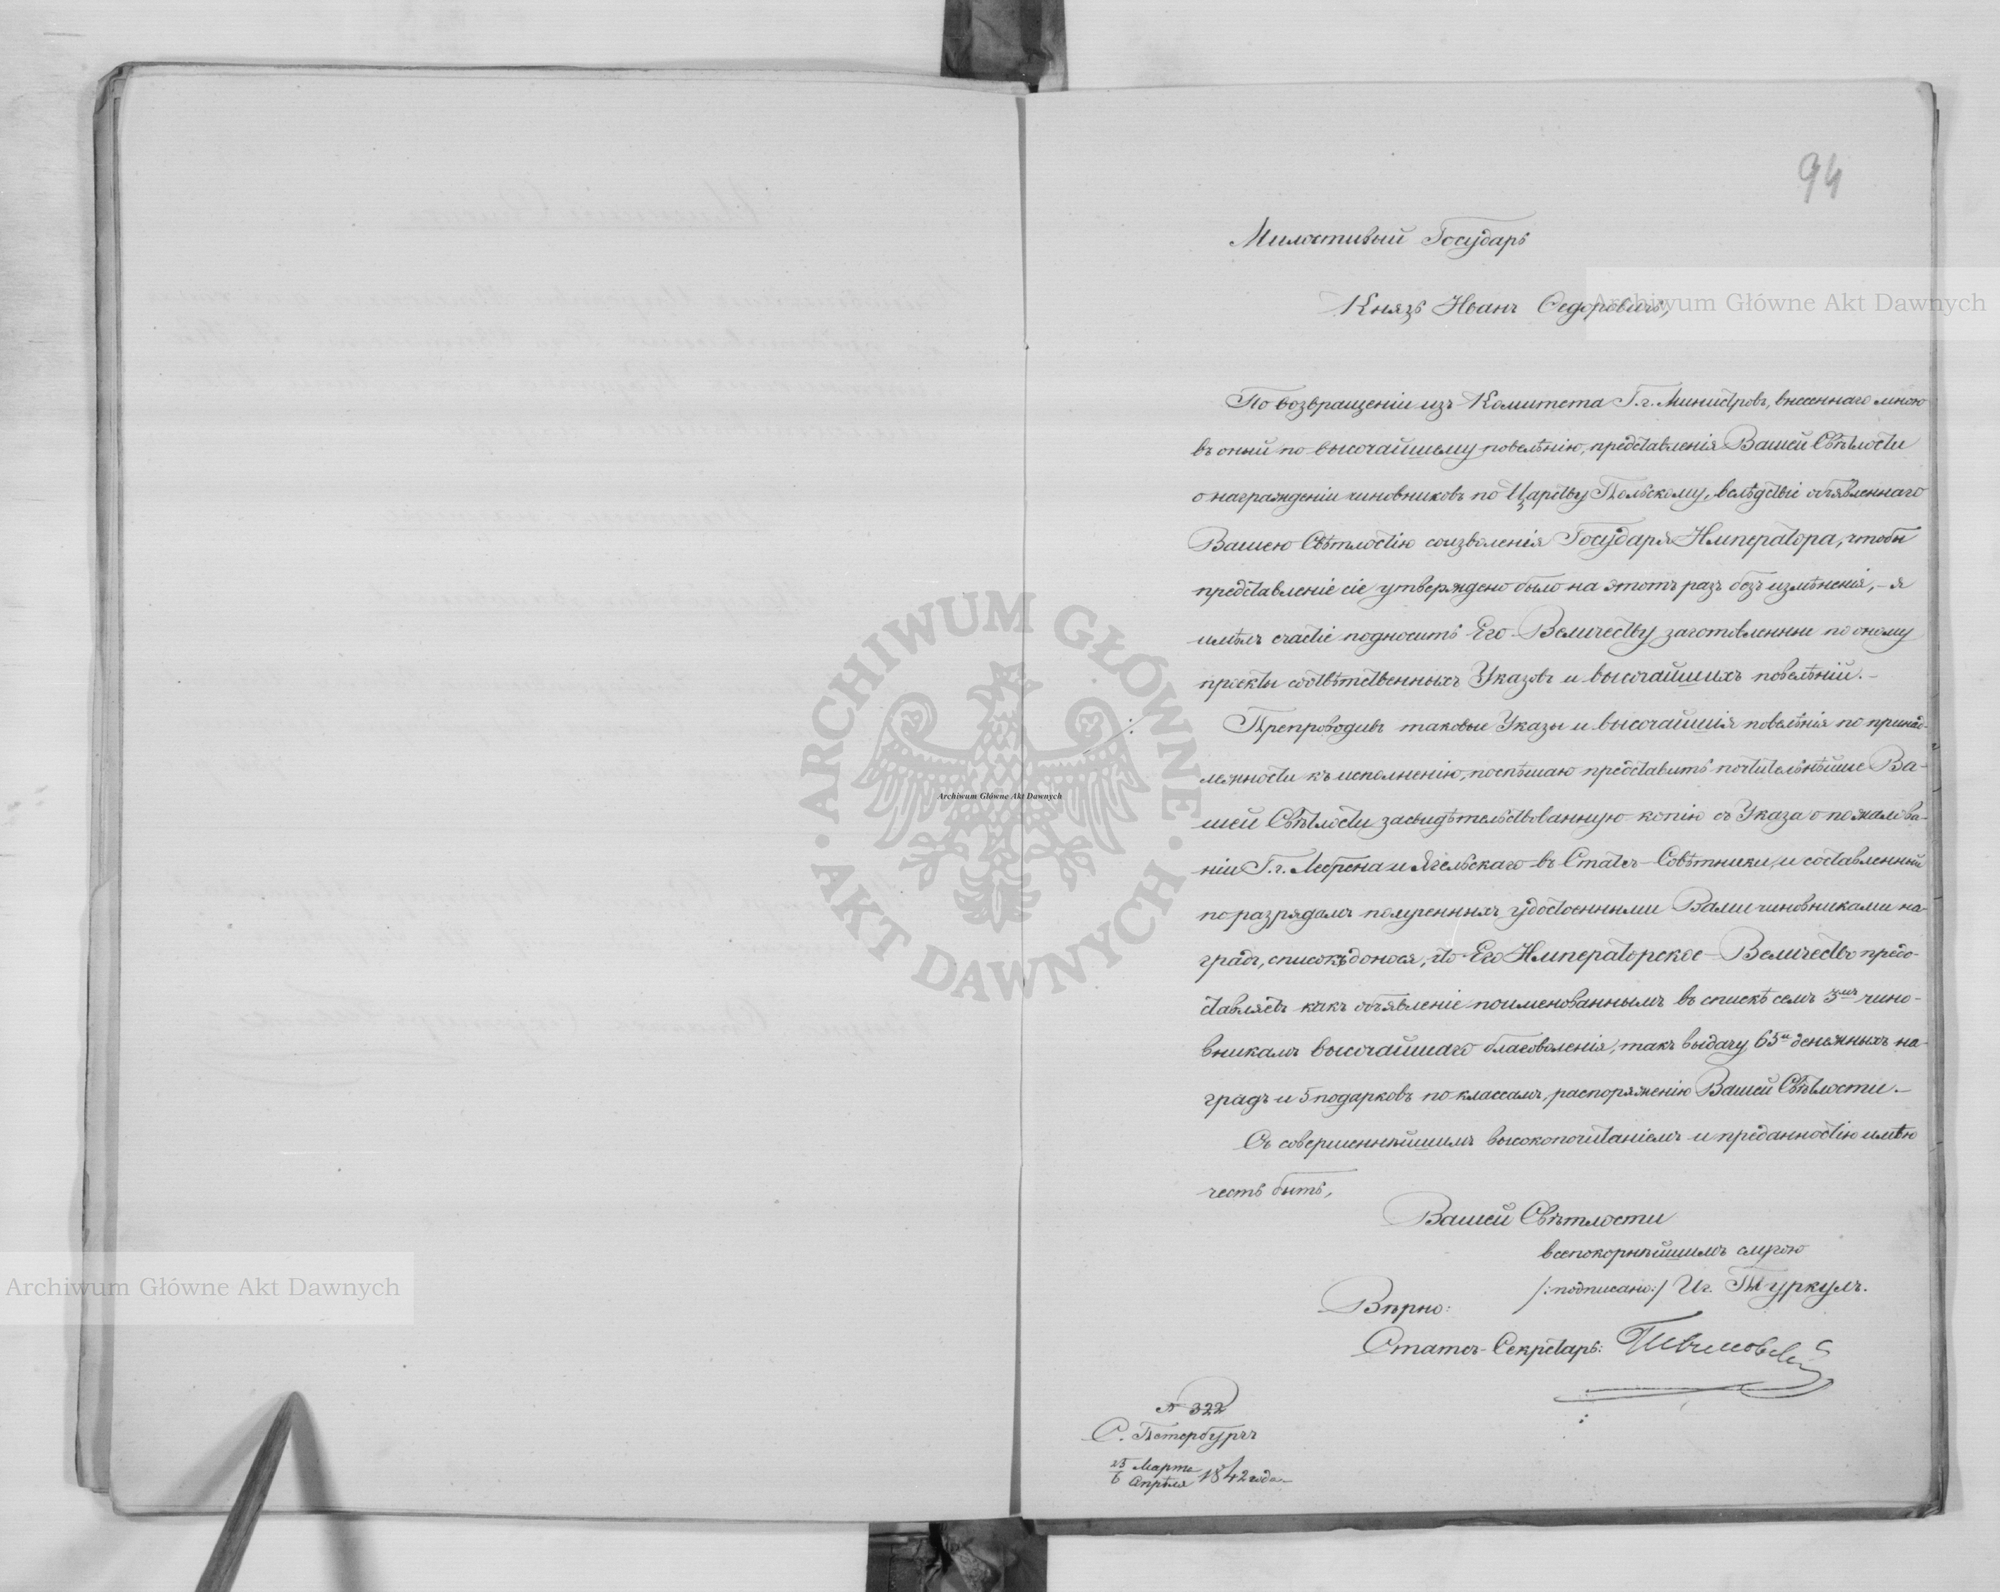 94
Милостивый Государь
Князь Иванъ Ѳедоровичъ,
По возвращеніи изъ Комитета Г.г. Министровъ, внесеннаго мною
въ оный по высочайшему повелѣнію, представленія Вашей Свѣтлости
о награжденіи чиновниковъ по Царству Польскому, вслѣдствіе объявленнаго
Вашею Свѣтлостію соизволенія Государя Императора, чтобы
представленіе сіе утверждено было на этотъ разъ безъ измѣненія, - я
имѣлъ счастіе подносить Его Величеству заготовленные по оному
проекты соотвѣтственныхъ Указовъ и высочайшихъ повелѣній. -
Препроводивъ таковые Указы и высочайшія повелѣнія по принад-
лежности къ исполненію, поспѣшаю представить почтительнѣйше Ва-
шей Свѣтлости засвидѣтельствованную копію съ Указа о пожалова-
ніи Г.г. Лебрена и Ягельскаго въ Статсъ-Совѣтники, и составленный
по разрядамъ полученныхъ удостоенными Вами чиновниками на-
градъ, списокъ донося, что Его Императорское Величество предо-
ставляетъ какъ объявленіе поименованнымъ въ спискѣ семъ 3мъ чино-
вникамъ высочайшаго благоволенія, такъ выдачу 65и денежныхъ на-
градъ и 5 подарковъ по классамъ, распоряженію Вашей Свѣтлости. -
Съ совершеннѣйшимъ высокопочитаніемъ и преданностію имѣю
честь быть,
Вашей Свѣтлости
всепокорнѣйшимъ слугою
/:подписано:/ Иг. Туркулъ.
Вѣрно:
Статсъ-Секретарь:
№ 322
С. Петербургъ
25 Марта
6 Апрѣля 1842 года
Archiwum Główne Akt Dawnych
Archiwum Główne Akt Dawnych
Archiwum Główne Akt Dawnych
ARCHIWUM GŁÓWNE · AKT DAWNYCH ·